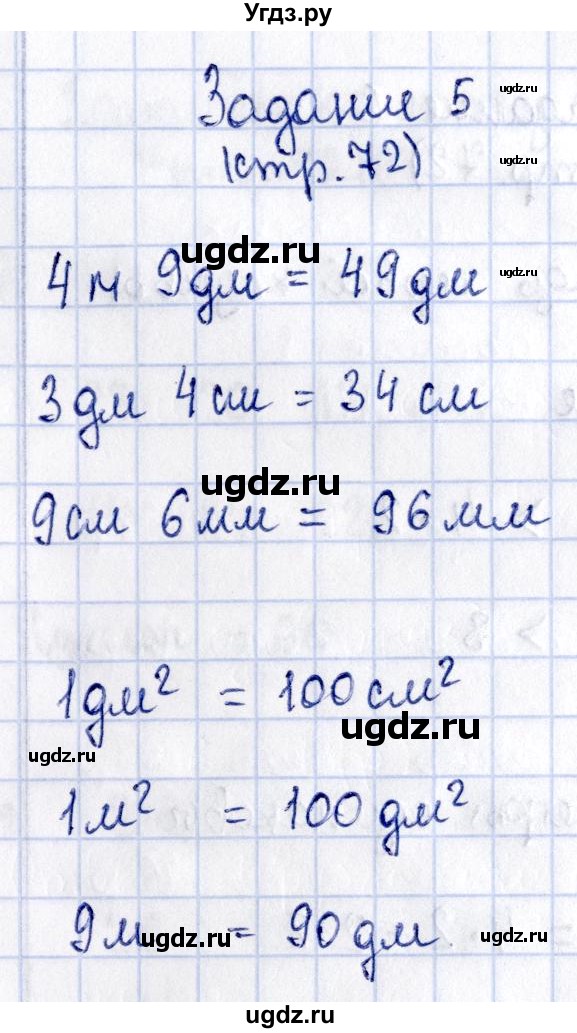 Угдз.ру
Задание 5
(стр. 72)
ugdz.ru
ugdz.ru
ugdz.ru
4 м 9 дм = 49 дм
ugdz.ru
3 дм 4 см = 34 см
ugdz.ru
9 см 6 мм = 96 мм
1 дм² = 100 см²
ugdz.ru
ugdz.ru
1 м² = 100 дм²
9 м = 90 дм
ugdz.ru
ugdz.ru
ugdz.ru